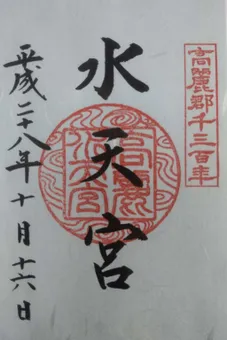 高麗郡千三百年
水天宮
平成二十八年十月十六日